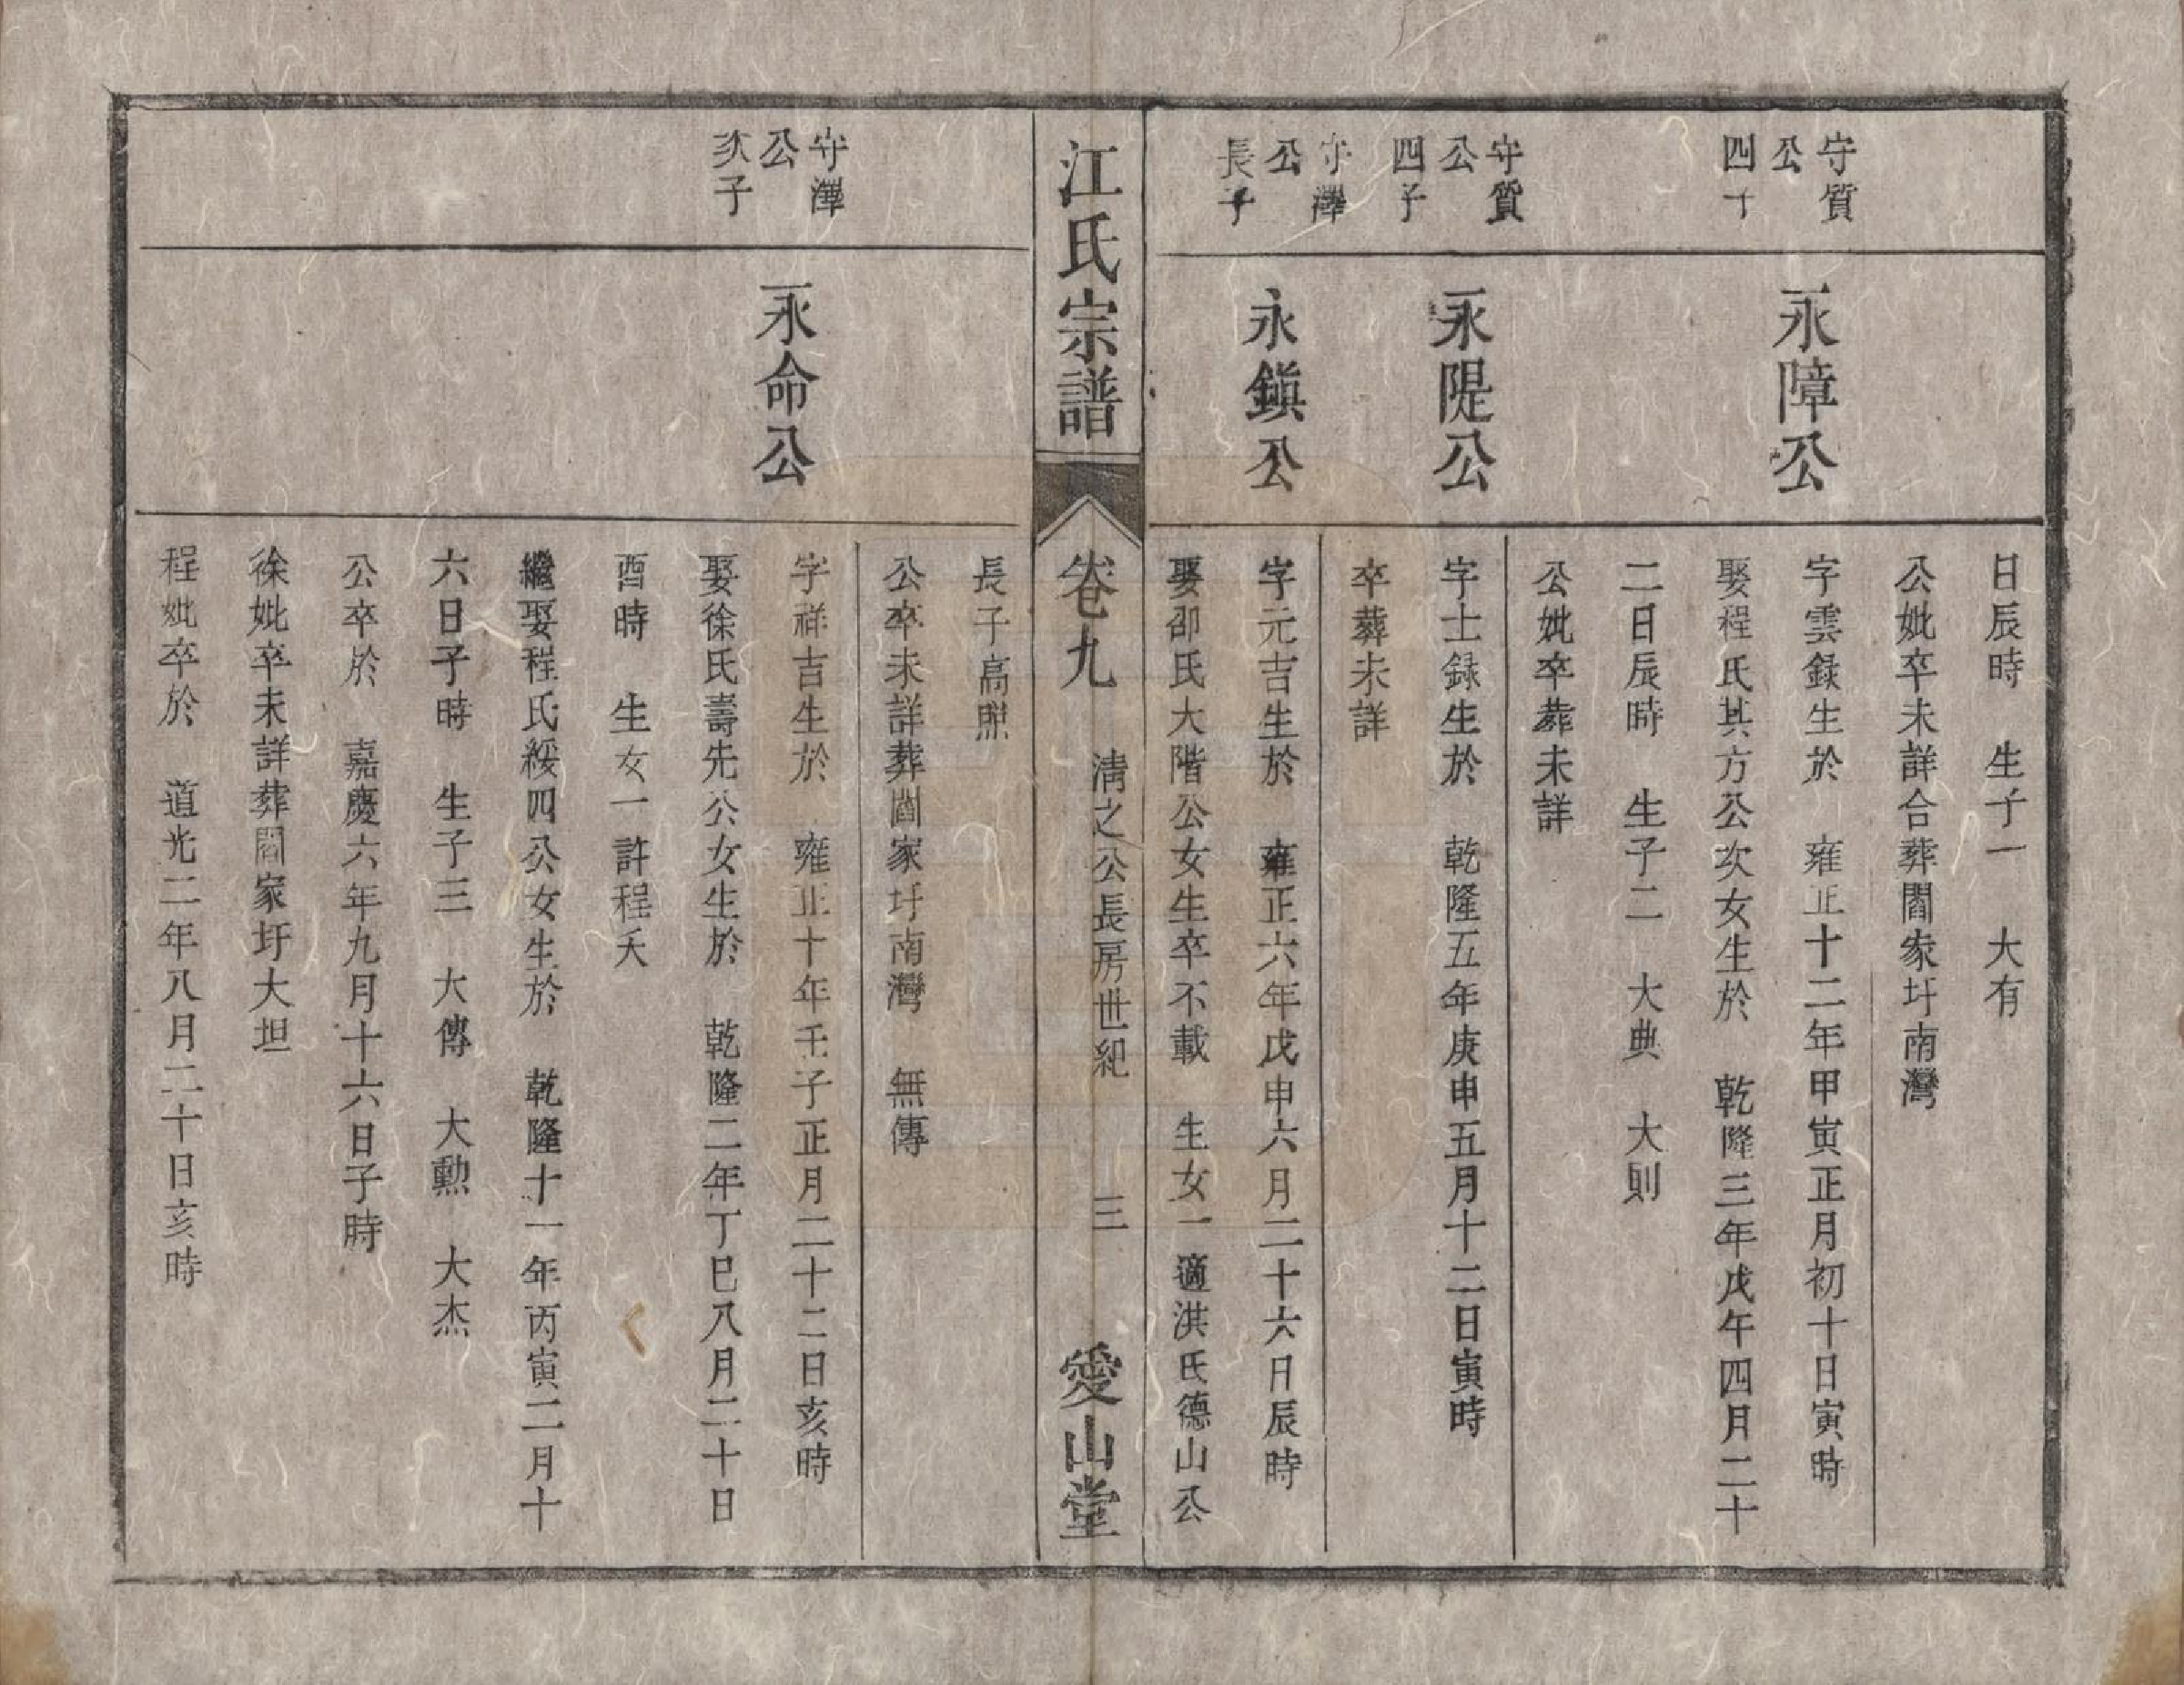 日辰時 生子一 大有
公妣卒未詳合葬閻家圩南灣
守質
公
四子
永障公
字雲錄生於 雍正十二年甲寅正月初十日寅時
娶程氏其方公次女生於 乾隆三年戊午四月二十
二日辰時 生子二 大典 大則
公妣卒葬未詳
守質
公
四子
永隄公
字士録生於 乾隆五年庚申五月十二日寅時
卒葬未詳
守澤
公
長子
永鎮公
字元吉生於 雍正六年戊申六月二十六日辰時
娶邵氏大階公女生卒不載 生女一適洪氏德山公
江氏宗譜
卷九 清之公長房世紀 三
愛山堂
長子高照
公卒未詳葬閻家圩南灣 無傳
守澤
公
次子
永命公
字祥吉生於 雍正十年壬子正月二十二日亥時
娶徐氏壽先公女生於 乾隆二年丁巳八月二十日
酉時 生女一許程夭
繼娶程氏綏四公女生於 乾隆十一年丙寅二月十
六日子時 生子三 大傳 大勳 大杰
公卒於 嘉慶六年九月十六日子時
徐妣卒未詳葬閻家圩大坦
程妣卒於 道光二年八月二十日亥時